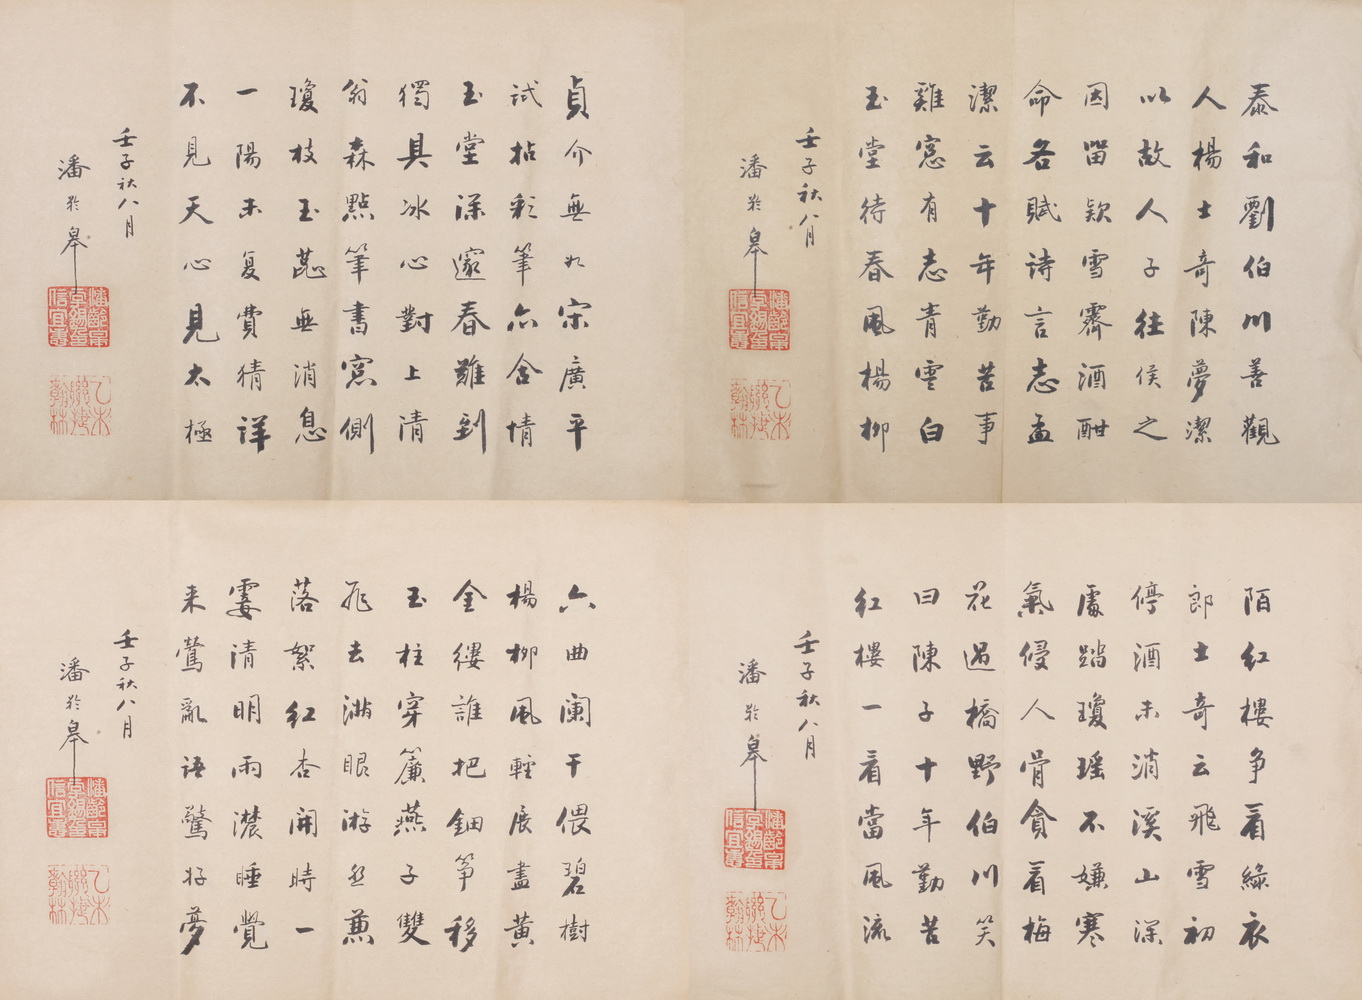 泰和劉伯川善觀
人楊士奇陳夢潔
以故人子往侯之
因留欵雪霽酒酣
命各賦詩言志孟
潔云十年勤苦事
雞窓有志青雲白
玉堂待春風楊柳
壬子秋八月
潘齡皋
乙未聯捷翰林
貞介無如宋廣平
試拈彩筆亦含情
玉堂深邃春難到
獨具冰心對上清
翁森點筆書窓側
瓊枝玉蕋無消息
一陽未复費猜詳
不見天心見太極
壬子秋八月
潘齡皋
乙未聯捷翰林
陌紅樓争看綠衣
郎士奇云飛雪初
停酒未消溪山深
處踏瓊瑶不嫌寒
氣侵人骨貪看梅
花過橋野伯川笑
曰陳子十年勤苦
紅樓一看當風流
壬子秋八月
潘齡皋
乙未聯捷翰林
六曲阑干偎碧樹
楊柳風輕展盡黄
金縷誰把鈿筝移
玉柱穿簾燕子雙
飛去滿眼游丝兼
落絮紅杏開時一
霎清明雨濃睡覺
来鶯亂語驚好夢
壬子秋八月
潘齡皋
乙未聯捷翰林